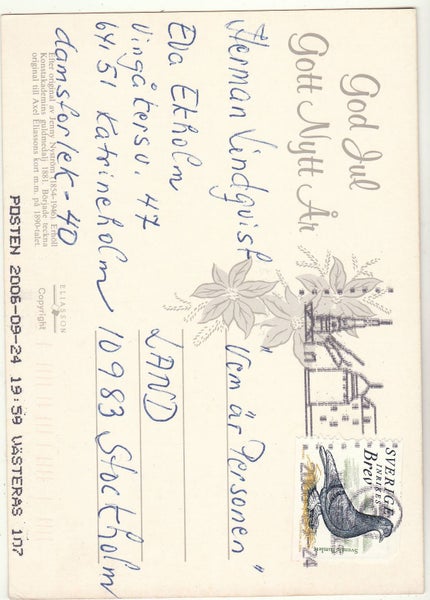 God Jul
Gott Nytt År
Herman Lindqvist
Eva Ekholm
Vingåkersv. 47
64151 Katrineholm
damstorlek - 40
"Vem är Personen"
LAND
10983 Stockholm
SVERIGE
INRIKES
Brev
Efter original av Jenny Nyström (1854-1946). Erhöll
Konstakademins guldmedalj 1881. Började teckna
original till Axel Eliassons kort m.m. på 1890-talet
ELIASSON
Copyright
POSTEN 2006-09-24 19:59 VÄSTERÅS 107